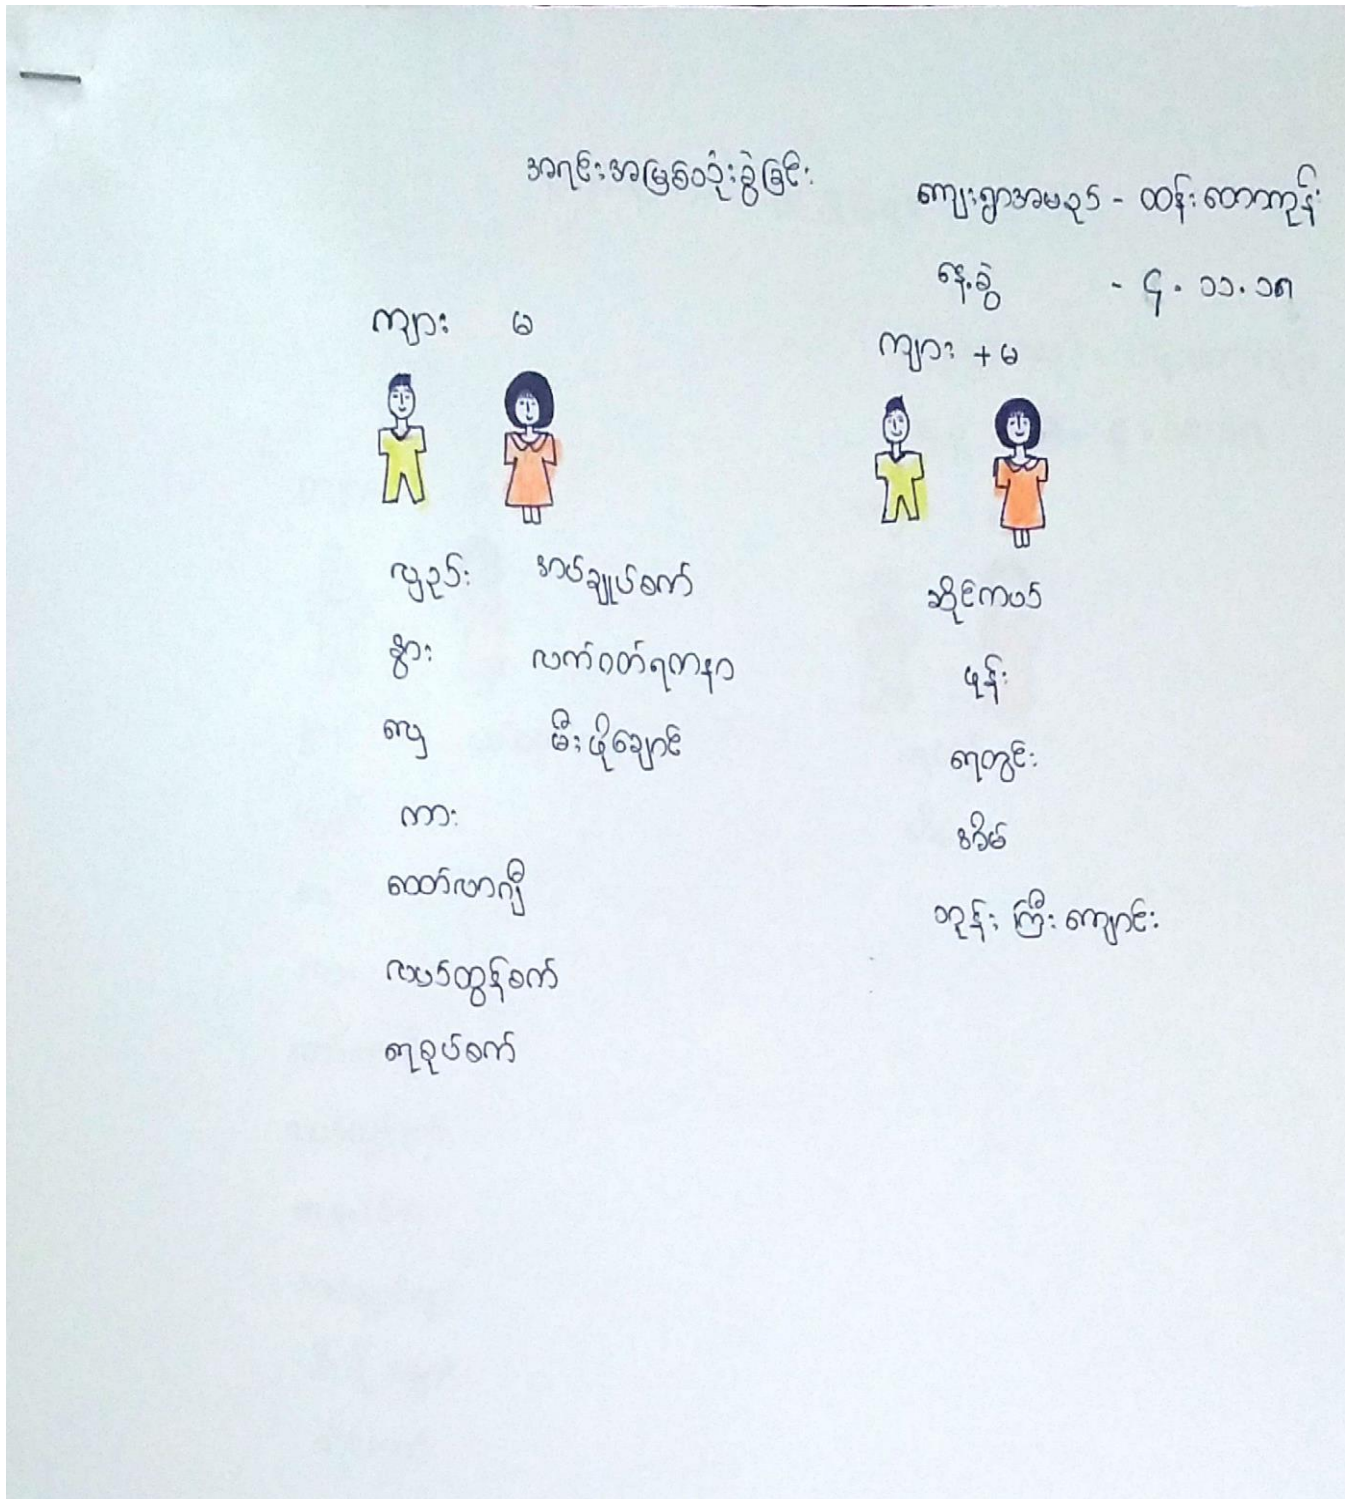 အရင်းအမြစ်ဝသုံးခွဲခြင်း
ကျေးရွာအမည် - ထန်းတောကုန်း
နေ့စွဲ - ၄.၁၁.၁၈
ကျား မ
ကျား + မ
လှည်း အပ်ချုပ်စက်
နွား လက်ဝတ်ရတနာ
လှေ မီးဖိုချောင်
ကား
ထော်လာဂျီ
လယ်ထွန်စက်
ရေစုပ်စက်
ဆိုင်ကယ်
ဖုန်း
ရေတွင်း
အိမ်
ဘုန်းကြီးကျောင်း